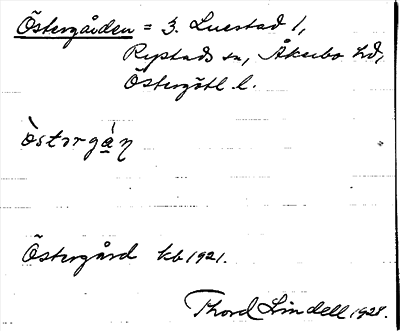 Östergården = 3. Luestad 1,
Rystads sn, Åkerbo hd,
Östergötl. l.
östərgá̱ŋ
Östergård kb 1921.
Thord Lindell 1928.